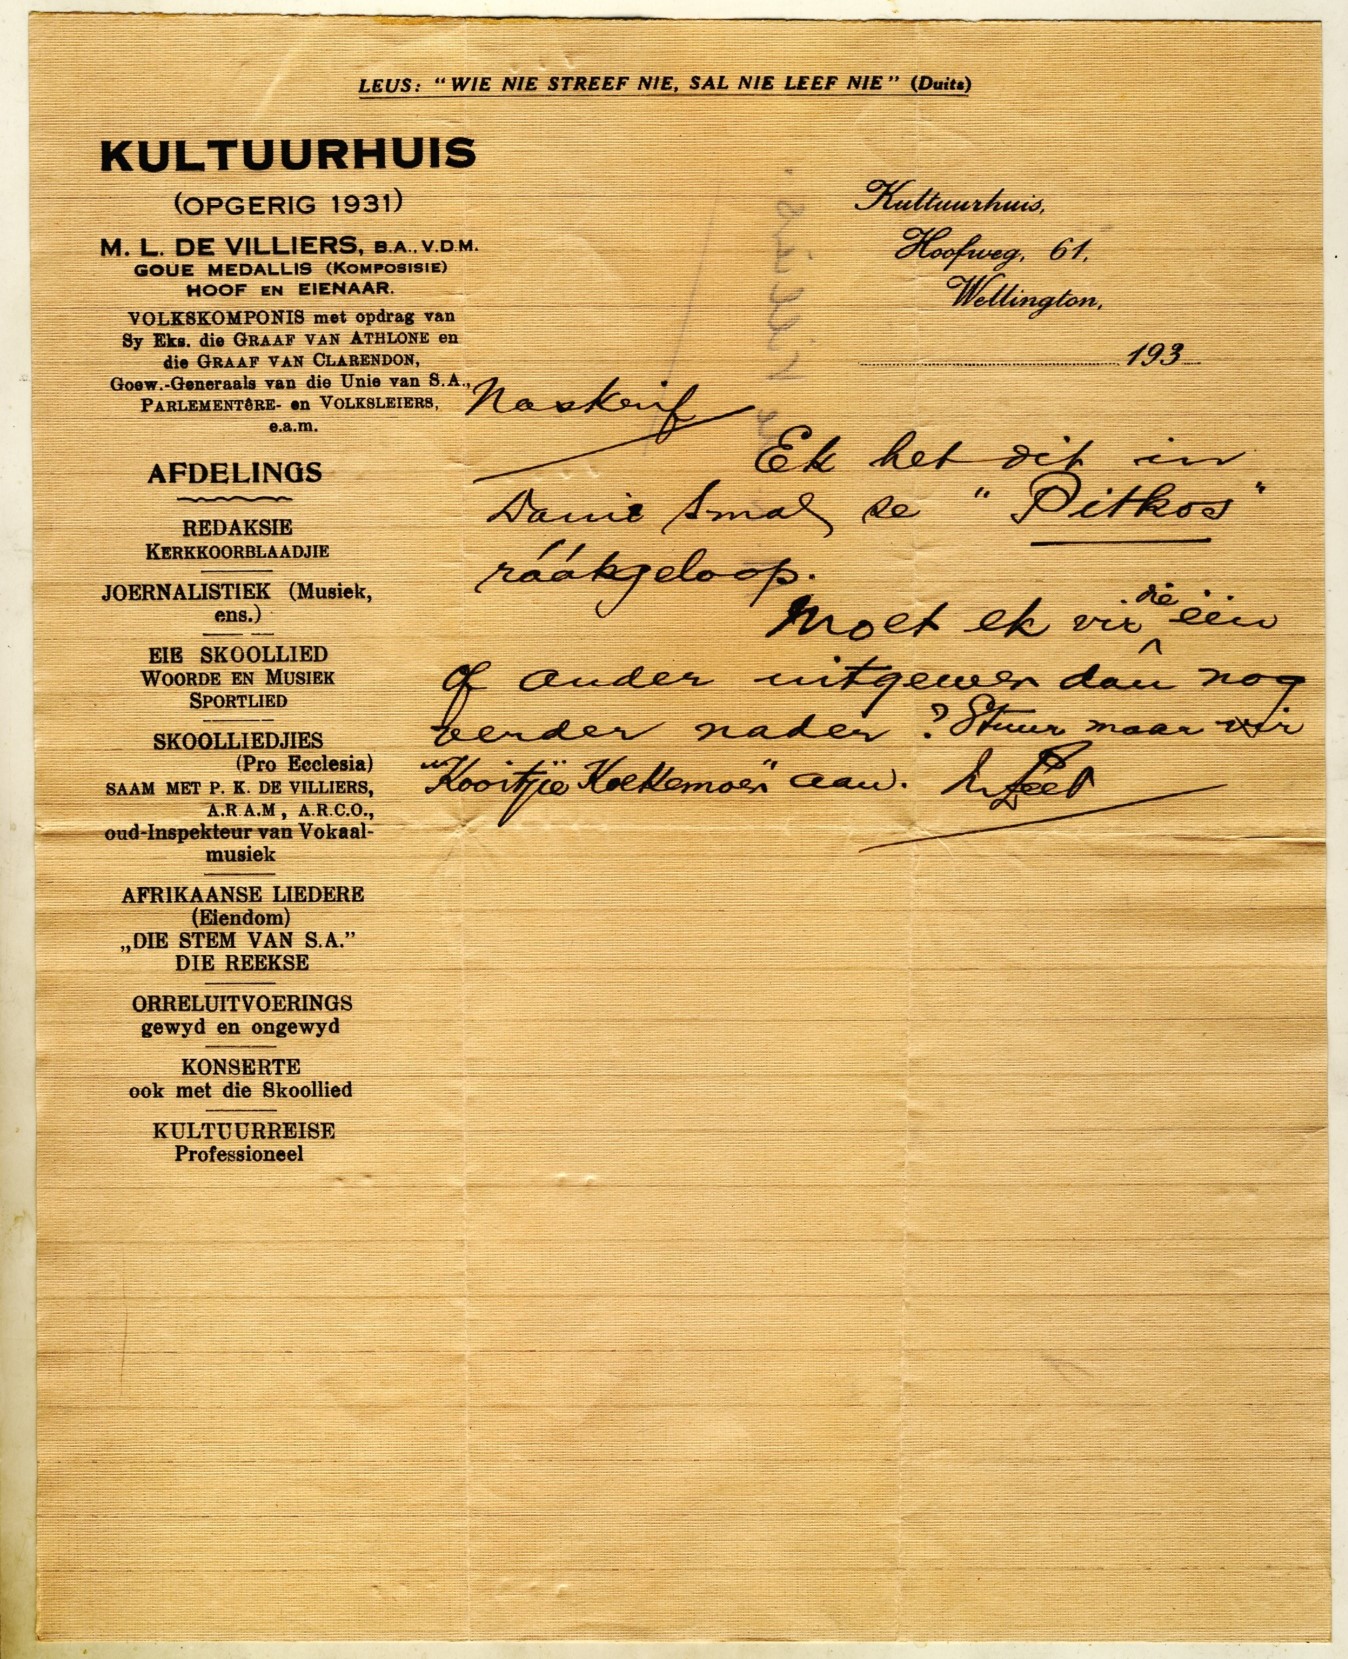 LEUS: "WIE NIE STREEF NIE, SAL NIE LEEF NIE" (Duits)
KULTUURHUIS
(OPGERIG 1931)
M. L. DE VILLIERS, B.A., V.D.M.
GOUE MEDALLIS (KOMPOSISIE)
HOOF EN EIENAAR.
VOLKSKOMPONIS met opdrag van
Sy Eks. die GRAAF VAN ATHLONE en
die GRAAF VAN CLARENDON,
Goew.-Generaals van die Unie van S.A.,
PARLEMENTêRE- en VOLKSLEIERS,
e.a.m.
AFDELINGS
REDAKSIE
KERKKOORBLAADJIE
JOERNALISTIEK (Musiek,
ens.)
EIE SKOOLLIED
WOORDE EN MUSIEK
SPORTLIED
SKOOLLIEDJIES
(Pro Ecclesia)
SAAM MET P. K. DE VILLIERS,
A.R.A.M., A.R.C.O.,
oud-Inspekteur van Vokaal-
musiek
AFRIKAANSE LIEDERE
(Eiendom)
„DIE STEM VAN S.A."
DIE REEKSE
ORRELUITVOERINGS
gewyd en ongewyd
KONSERTE
ook met die Skoollied
KULTUURREISE
Professioneel
Kultuurhuis,
Hoofweg, 61,
Wellington,
193
Naskrif
Ek het dit in
Danie Smal se "Pitkos"
ráákgeloop.
Moet ek vir die één
of ander uitgewer dan nog
verder nader? Stuur maar vir
"Kooitjie Koekemoer" aan.